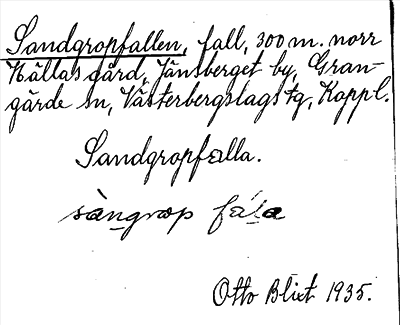 Sandgropfallen, fall, 300 m. norr
Källas gård, Jänsberget by, Gran-
gärde sn, Västerbergslags tg, Koppl.
Sandgropfalla.
sàngrop fála
Otto Blixt 1935.